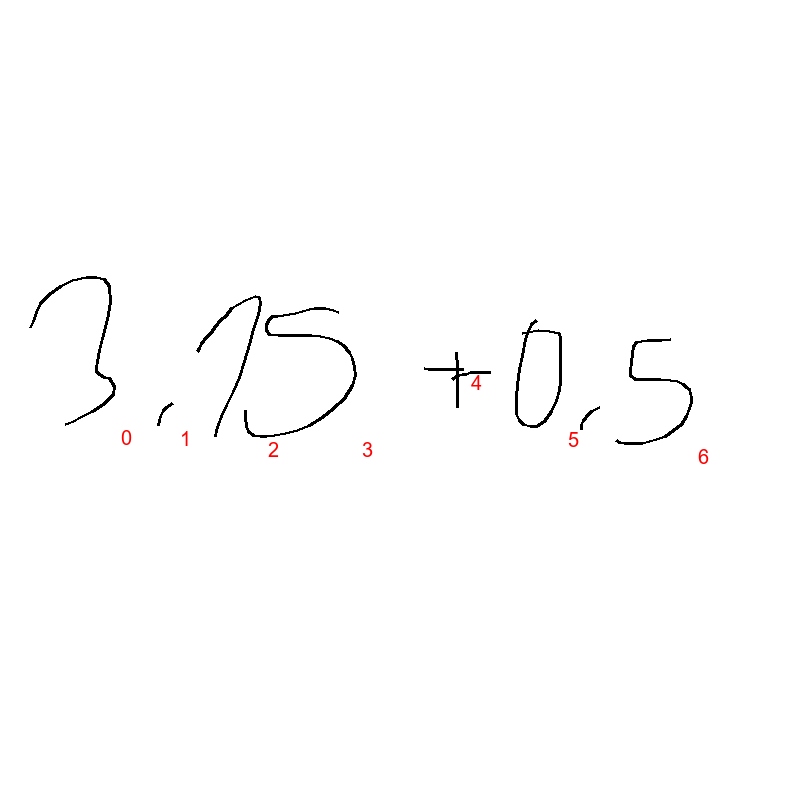 3,15 + 0,5
0 1 2 3 4 5 6